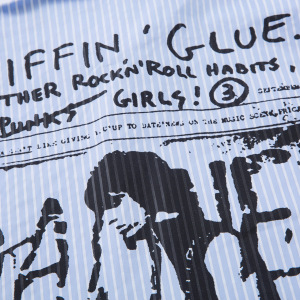 IFFIN' GLUE.
THER ROCK'N'ROLL HABITS,
PUNKS GIRLS! ③
LIKE GIVING UP TO DATE NEWS ON THE MUSIC SCENE